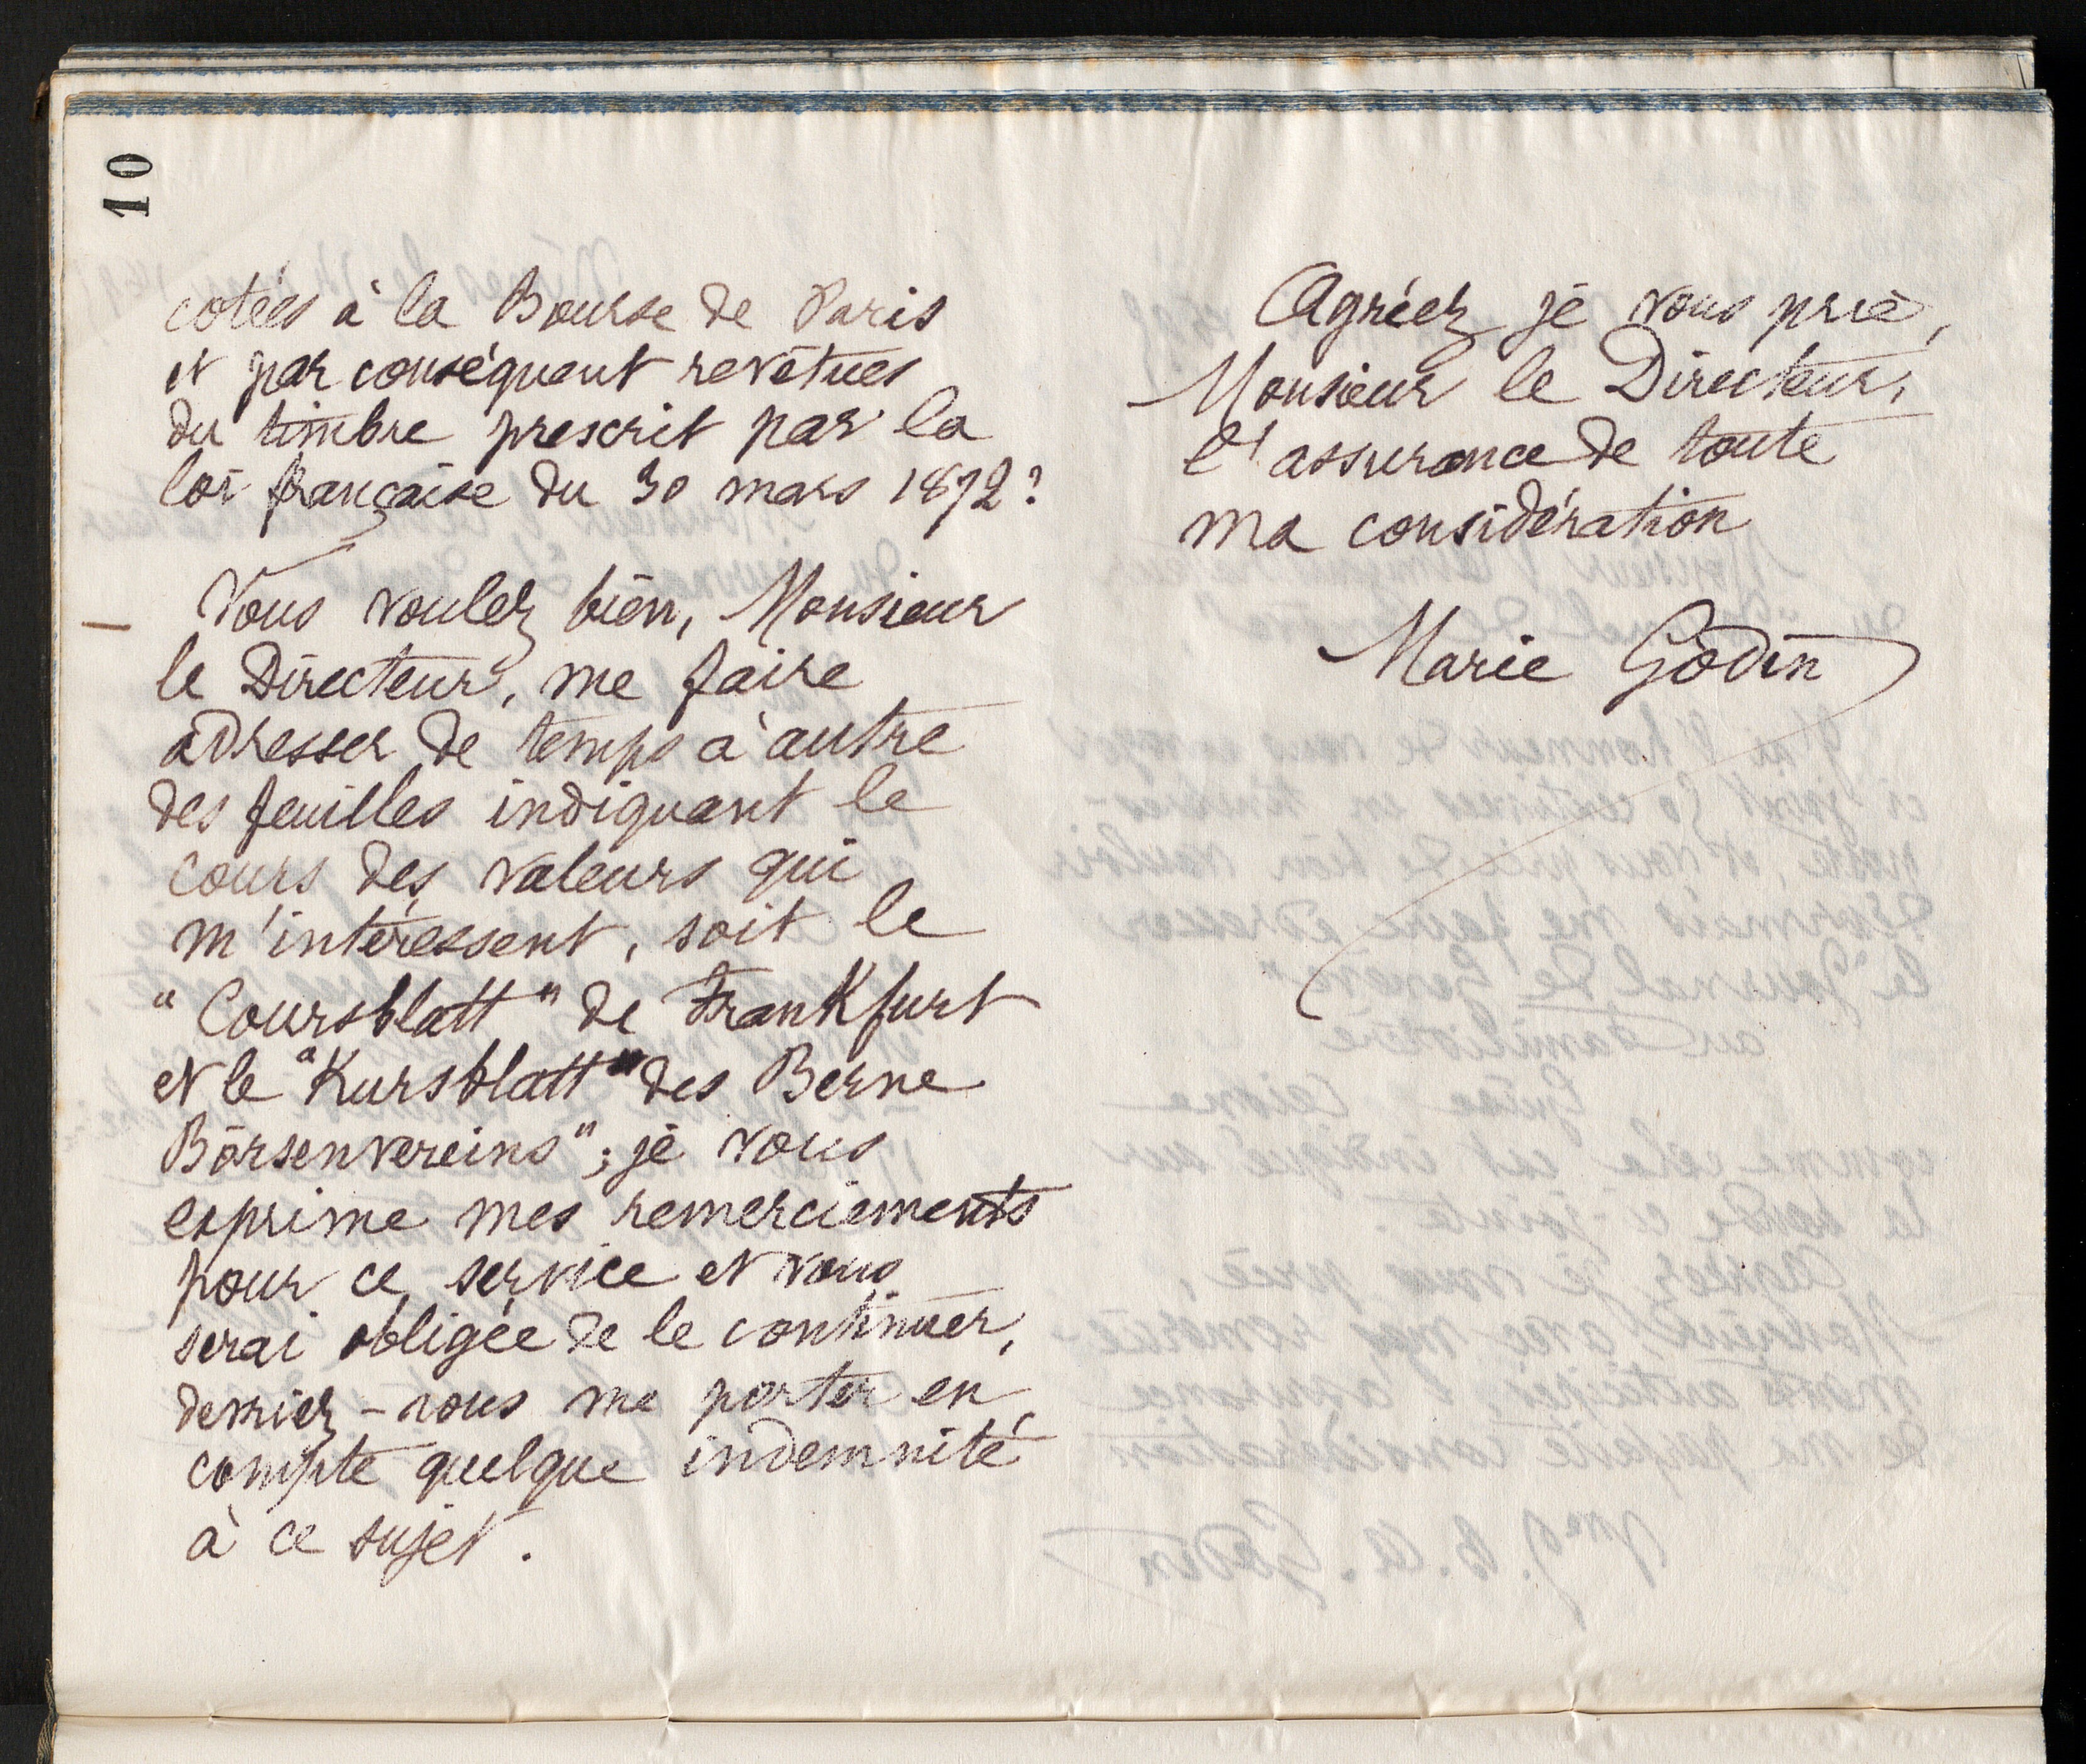 10
cotées à la Bourse de Paris
et par conséquent revêtues
du timbre prescrit par la
loi française du 30 mars 1872?
Vous voulez bien, Monsieur
le Directeur, me faire
adresser de temps à autre
des feuilles indiquant le
cours des valeurs qui
m'intéressent, soit le
"Coursblatt" de Frankfurt
et le "Kursblatt" des Berne
Börsenvereins"; je vous
exprime mes remerciements
pour ce service et vous
serai obligée de le continuer,
devriez-vous me porter en
compte quelque indemnité
à ce sujet.
Agréez je vous prie,
Monsieur le Directeur,
l'assurance de toute
ma considération
Marie Godin